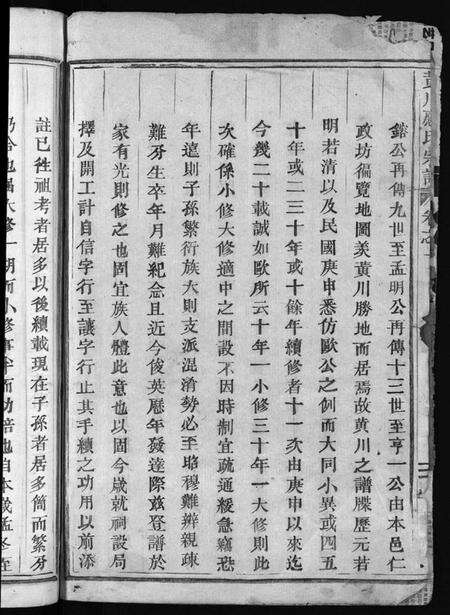 鏻公再傳九世至孟明公再傳十三世至亨一公由本邑仁
政坊徧覽地圖羨黃川勝地而居焉故黃川之譜牒歷元若
明若清以及民國庚申悉仿歐公之例而大同小異或四五
十年或二三十年或十餘年續修者十一次由庚申以來迄
今幾二十載誠如歐所云十年一小修三十年一大修則此
次確係小修大修適中之間設不因時制宜疏通緩急竊恐
年遠則子孫繁衍族大則支派混淆勢必至昭穆難辨親疎
難分生卒年月難紀念且近今後英歷年發達際茲登譜於
家有光則修之也固宜族人體此意也以固今歲就祠設局
擇及開工計自信字行至讓字行止其手續之功用以前添
註已徃祖考者居多以後續載現在子孫者居多簡而繁分
乃合也溫大修一期而小修事半而功倍也自本歲孟冬在
黃川 氏宗譜 卷之